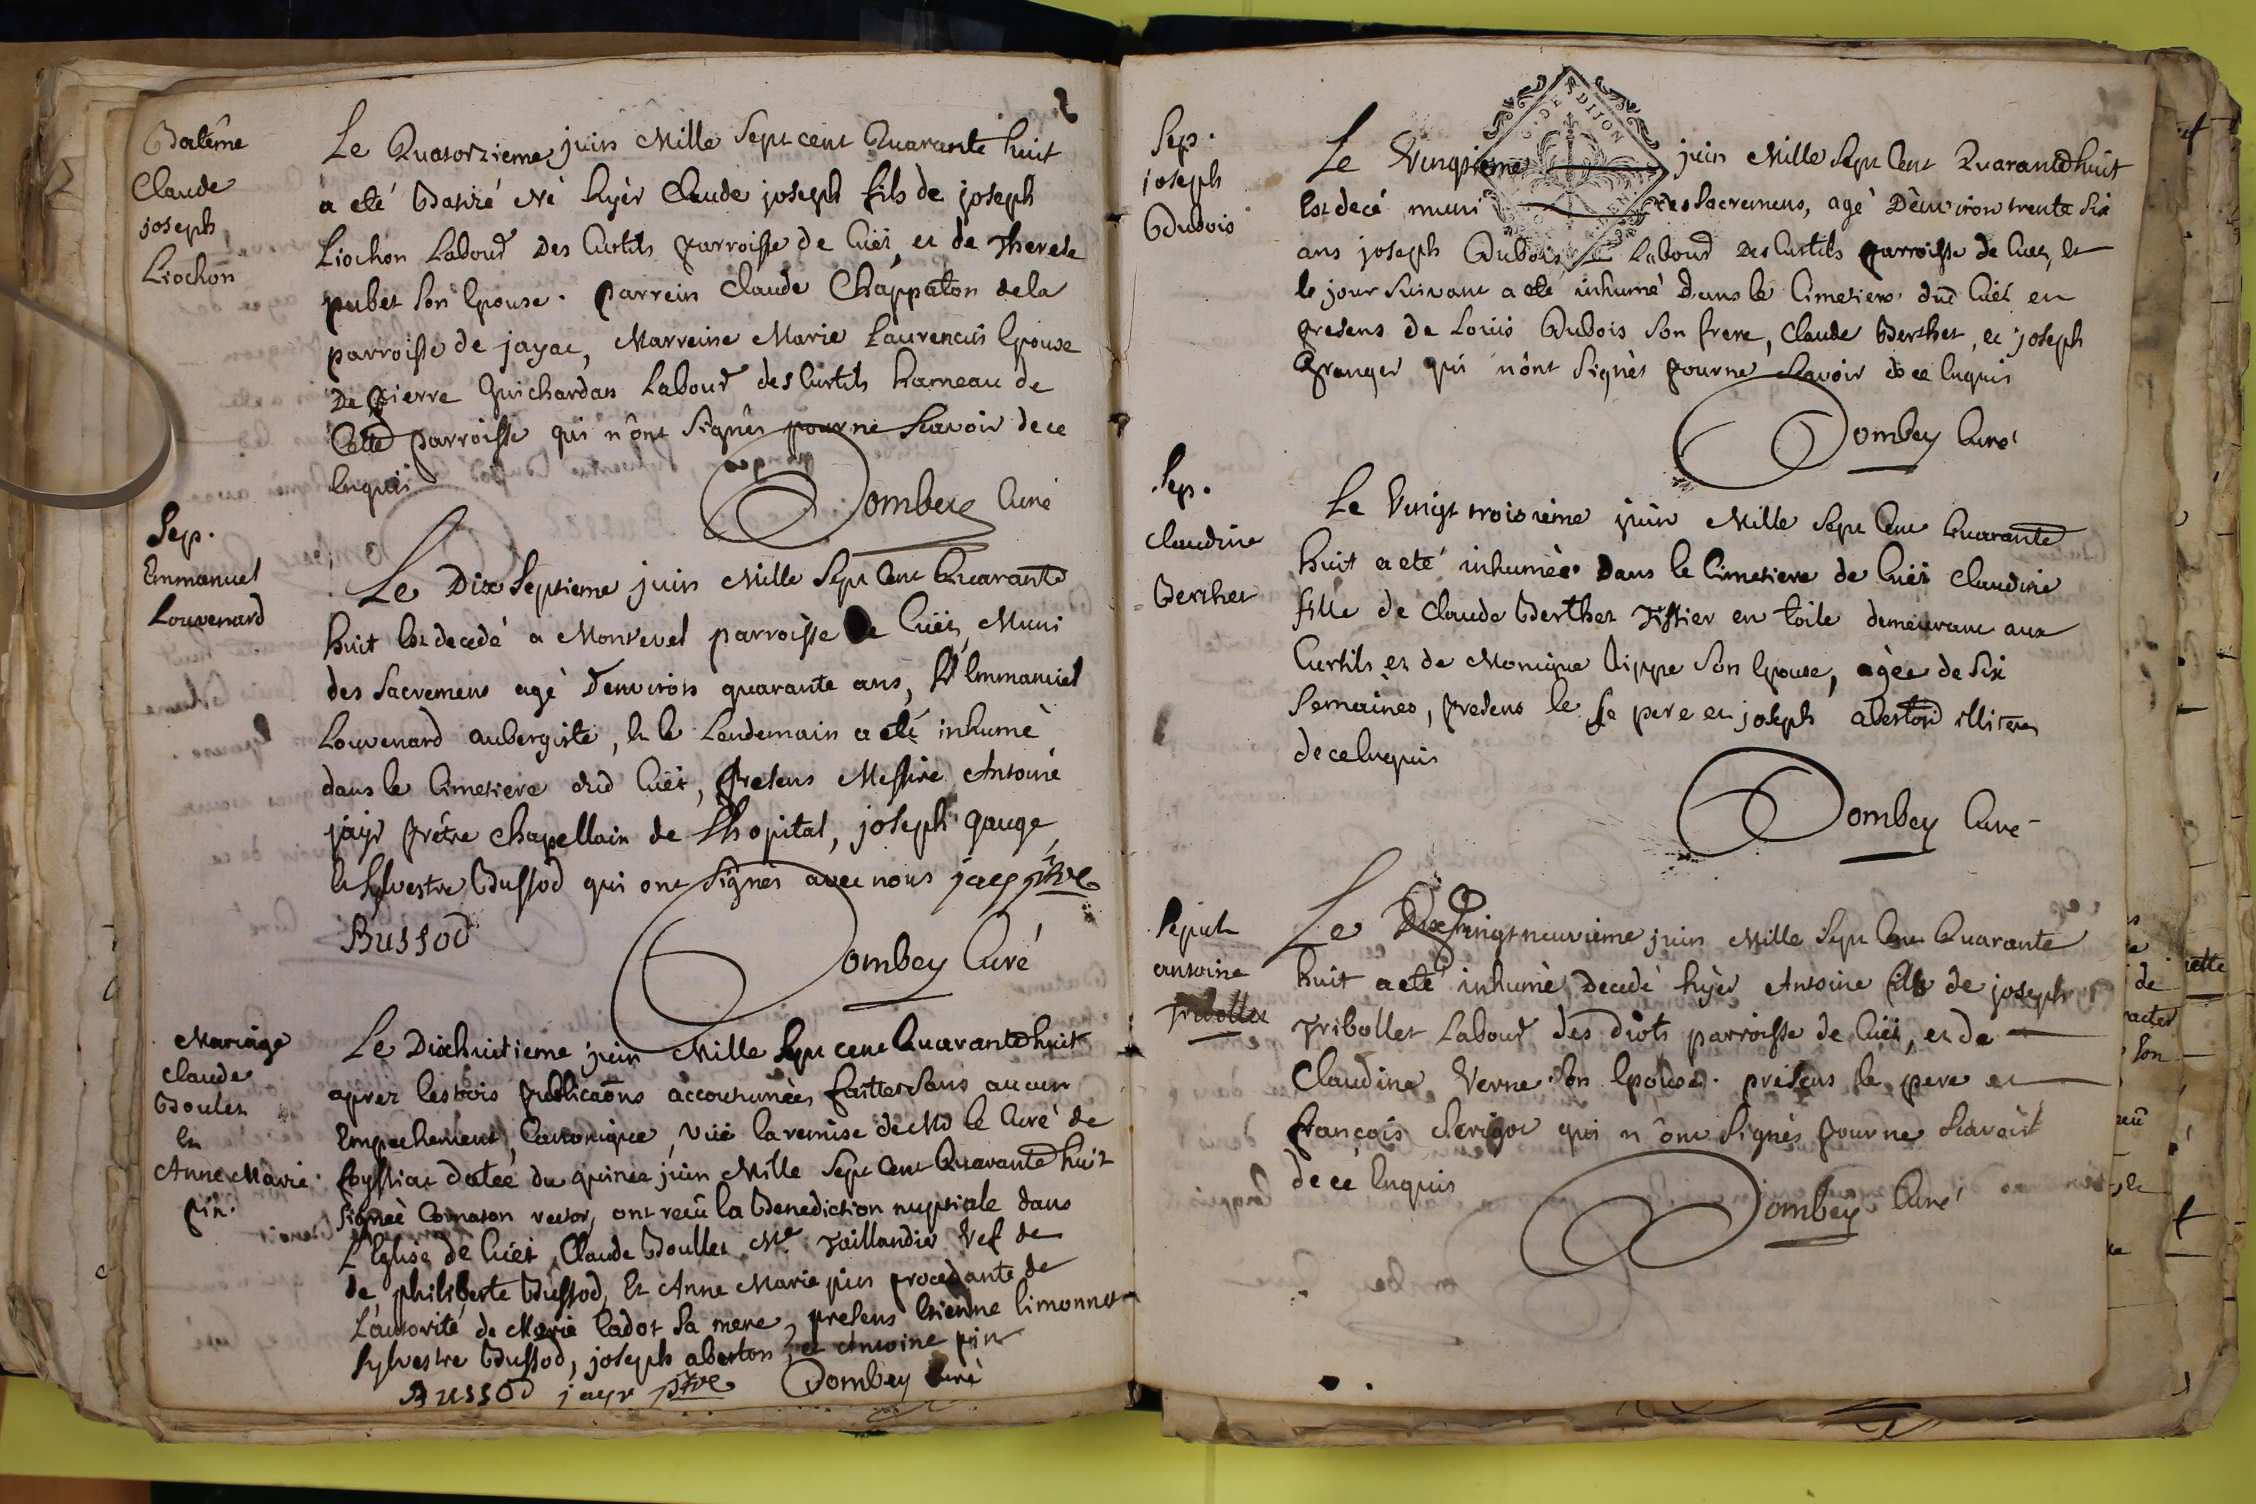 2
Batême
Claude
joseph
Liochon
Le Quatorzieme juin Mille Sept cent Quarante huit
a eté Batizé Né hyèr Claude joseph fils de joseph
Liochon Labour Des Curtils parroisse de Cuët, et de Therese
pubet Son Epouse. parrein Claude Chappaton dela
parroisse de jayac, Marreine Marie Laurencin Epouse
De pierre Guichardan Labour des Curtils hameau de
Cette parroisse qui n'ônt Signés pour ne Scavoir de ce
Enquis
Dombey Curé
Sep.
Emmanuel
Louvenard
Le Dix Septieme juin Mille Sept Cent Quarante
huit Est decedé a Montevel parroisse de Cuët, Muni
des Sacremens agé D'environ quarante ans, Sr Emmanuel
Louvenard aubergiste, Et le Lendemain a eté inhumé
dans le Cimetiere dud Cuët, presens Messire Antoine
jayr prêtre Chapellain de L'hopital, joseph gauge
Et Sylvestre Bussod qui ont Signés avec nous jayr ptre
Bussod
Dombey Curé
Mariage
Claude
Boulet
Et
Anne Marie
pin.
Le Dixhuitieme juin Mille Sept cent Quarante huit
aprez les trois publicaôns accoutumées faittes Sans aucun
Empechement Canonique, Vüe la remise de Mr le Curé de
foyssiat datée du quinze juin Mille Sept Cent Quarante huit
Signeé Comaton rector, ont reçû la Benediction nuptiale dans
L'Eglise de Cuët, Claude Boullet Me Taillandier Vef de
de philiberte Bussod, Et Anne Marie pin procedante de
L'autorité de Marie Cadot Sa mere, presens Etienne Limonnet
Sylvestre Bussod, joseph aberton, et Antoine pin
Bussod jayr ptre Dombey Curé
Sep.
joseph
Dubois
G. DE DIJON
Le Vingtieme juin Mille Sept Cent Quarante huit
Est decé muni des Sacremens, agé D'environ trente Six
ans joseph Dubois Labour Des Curtils parroisse de Cuet, Et
le jour Suivant a eté inhumé Dans le Cimetiere dud Cuët en
presens de Loüis Dubois Son frere, Claude Berthet, et joseph
Granger qui n'ônt Signés pour ne Scavoir de ce Enquis
Dombey Curé
Sep.
Claudine
Berthet
Le Vingt troisieme juin Mille Sept Cent Quarante
huit a eté inhumée Dans le Cimetiere de Cuët Claudine
fille de Claude Berthet Tissier en toile demeurant aux
Curtils et de Monique Lippe Son Epouse, agée de Six
Semaines, presens le Se pere et joseph aberton
de ce Enquis
Dombey Curé
Sepult
antoine
Tribollet
Le Vingt neuvieme juin Mille Sept Cent Quarante
huit a eté inhumé Decedé hyèr Antoine fils de joseph
Tribollet Labour des diots parroisse de Cuët, et de
Claudine Verne Son Epouse. presens le pere et
françois qui n'ônt Signés pour ne Scavoir
de ce Enquis
Dombey Curé